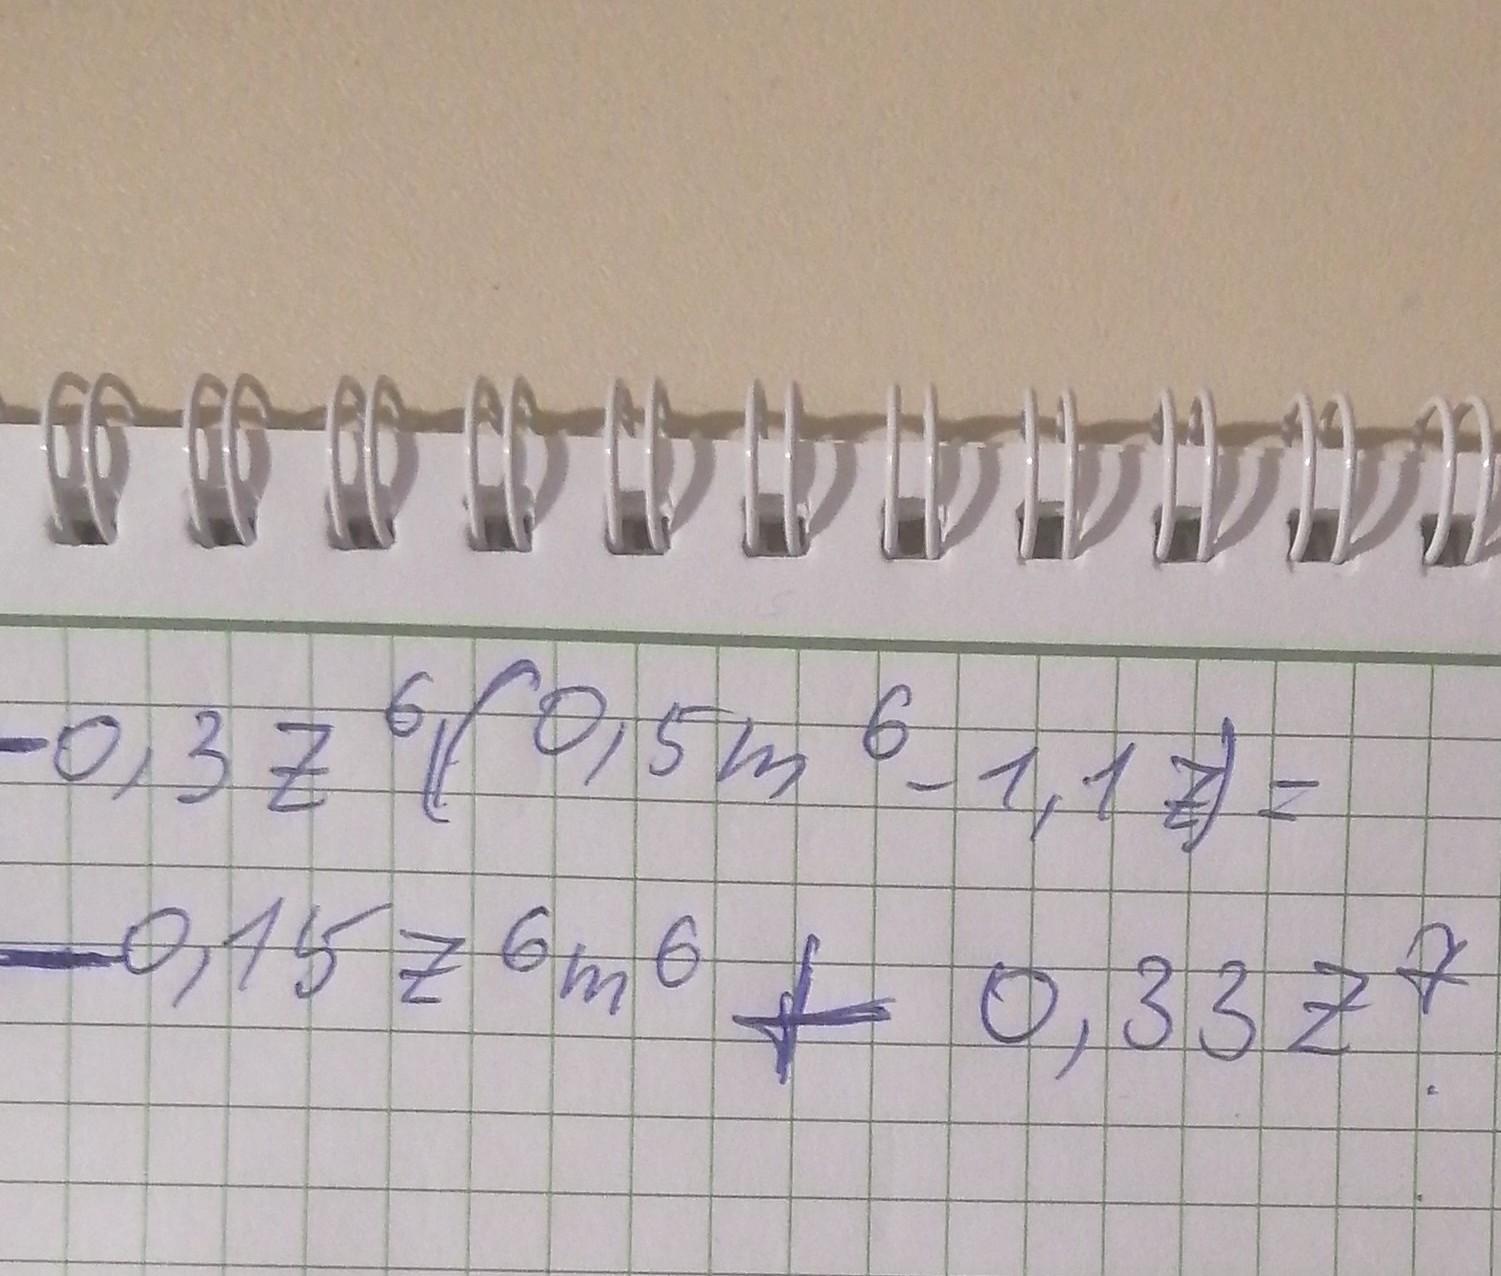 -0,3z⁶(0,5m⁶-1,1z)=
-0,15z⁶m⁶+0,33z⁷.